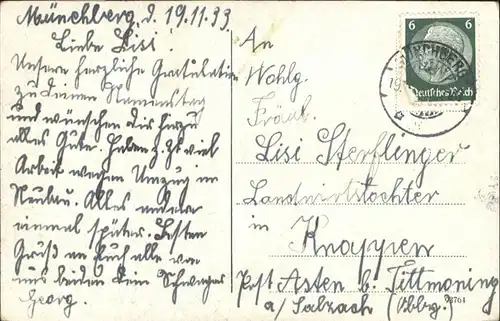 Münchberg, d. 19.11.33
Liebe Lisi!
Unsere herzliche Gratulation
zu Deinem Namenstag
und wünschen Dir hiezu
alles Gute. Haben z. Zt. viel
Arbeit wegen Umzug im
Neubau. Alles andere
einmal später. Besten
Gruß an Euch alle von
uns beiden Dein Schwager
Georg.
An
Wohlg.
Fräul.
Lisi Sterflinger
Landwirtstochter
in
Knappen
Post Asten b. Tittmoning
a/ Salzach (Obbg.)
6 6
Deutsches Reich
MÜNCHBERG